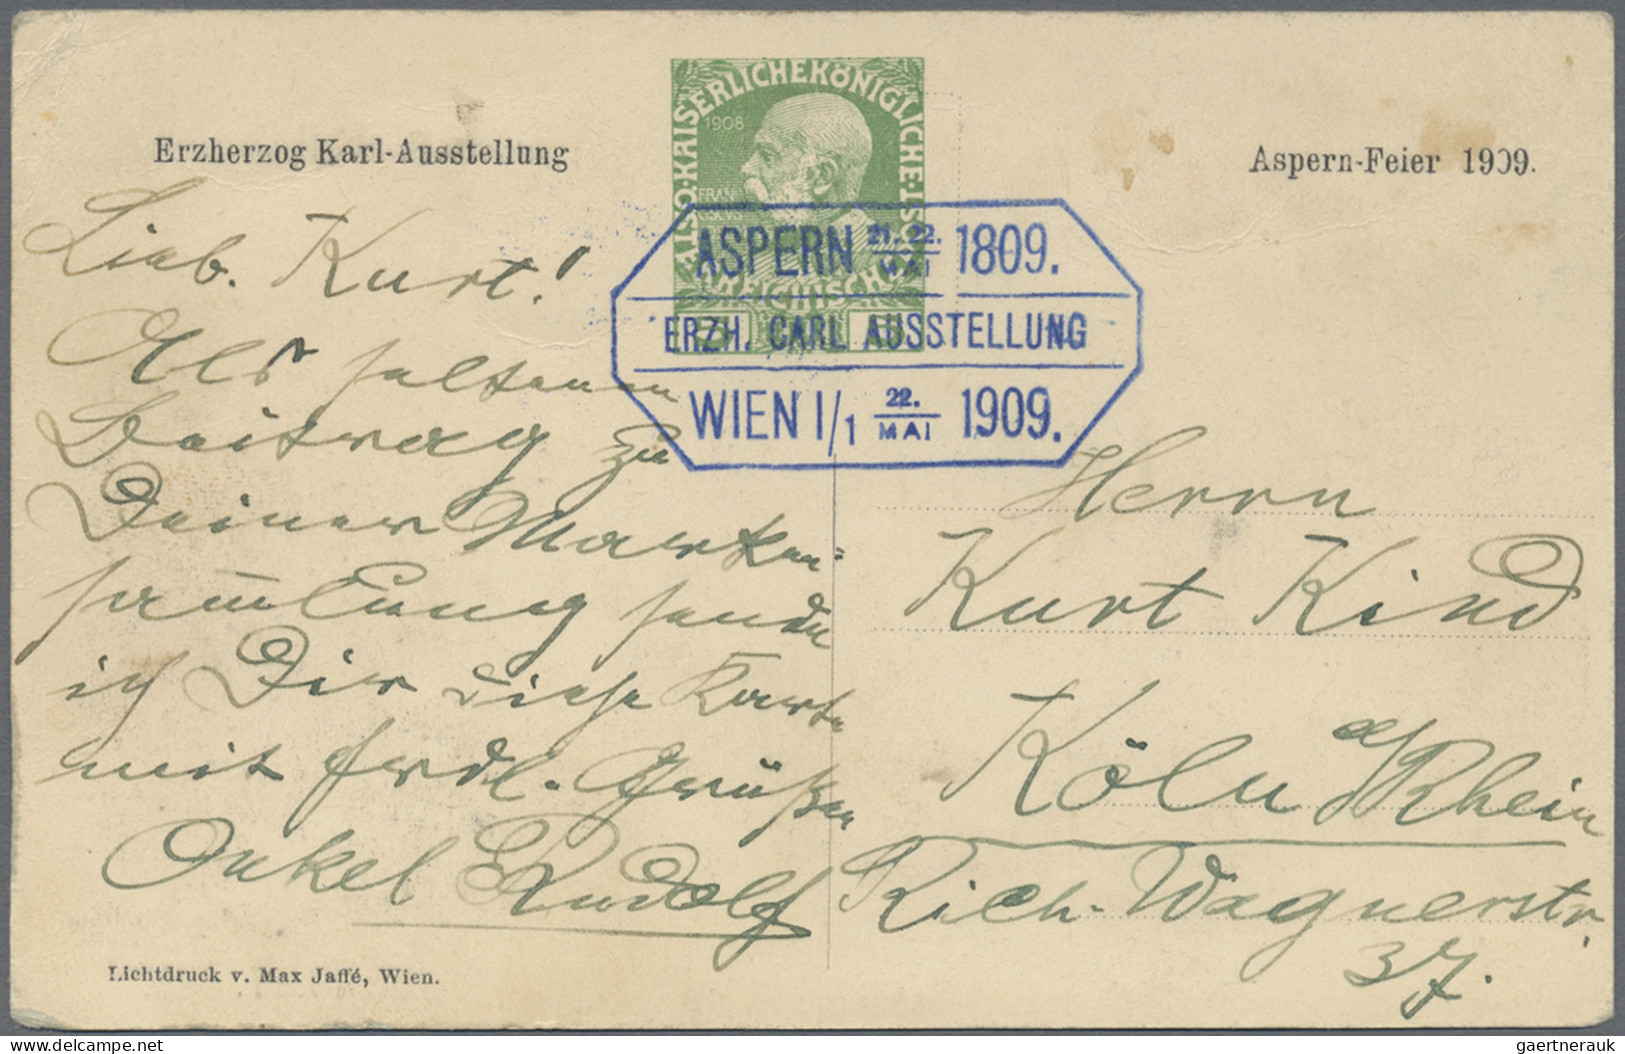 Erzherzog Karl-Ausstellung
Aspern-Feier 1909.
ALSO·KAISERLICHEKÖNIGLICHE·POST
1908
FRAN
CISCVS
ASPERN 21. 22. MAI 1809.
ERZH. CARL AUSSTELLUNG
WIEN I/1 22. MAI 1909.
Lieb. Kurt!
Als seltenen
Beitrag zu
Deiner Marken=
sammlung sende
ich Dir diese Karte
mit frdl. Grüßen
Onkel Rudolf
Herrn
Kurt Kind
Köln a/Rhein
Rich-Wagnerstr.
37.
Lichtdruck v. Max Jaffé, Wien.
gaertnerauk